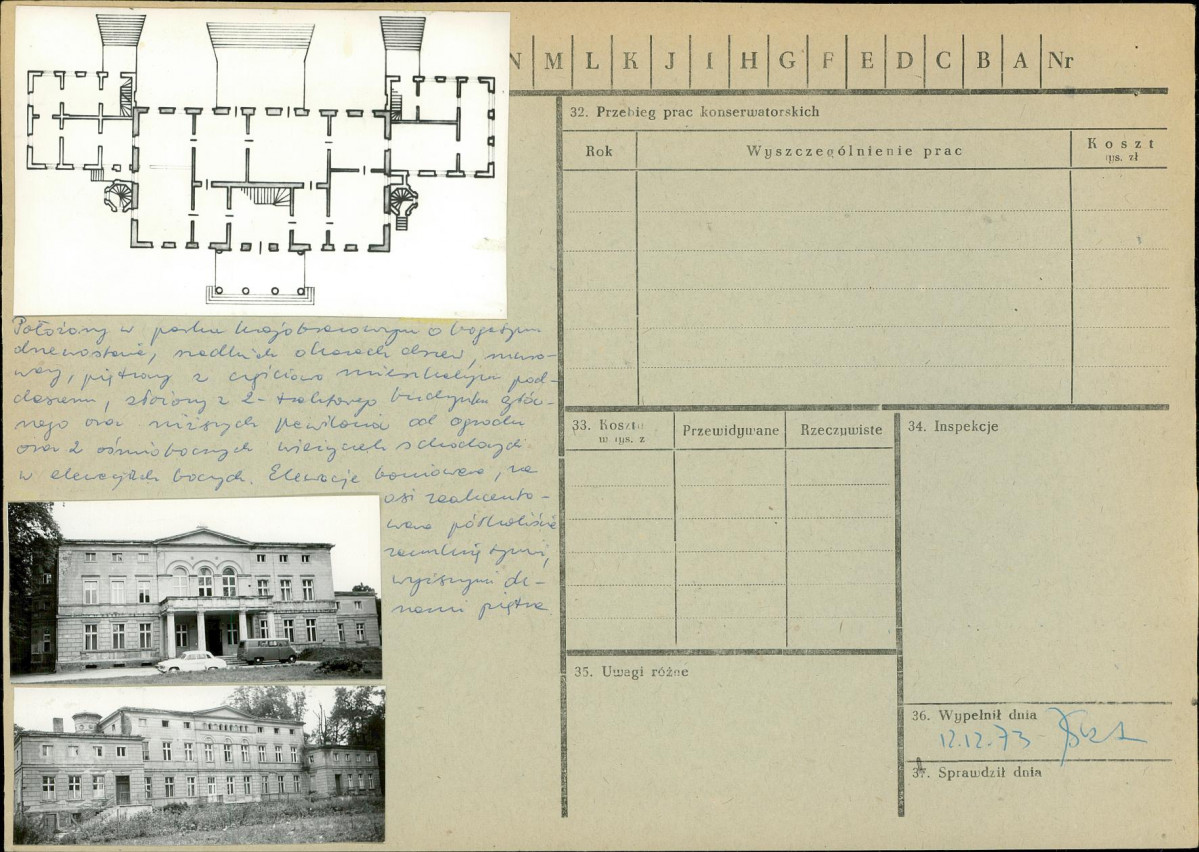 N M L K J I H G F E D C B A Nr
Położony w parku krajobrazowym o bogatym
drzewostanie, rzadkich okazach drzew, muro-
wany, piętrowy z częściowo mieszkalnym pod-
daszem, złożony z 2-traktowego budynku głów-
nego oraz niższych pawilonów od ogrodu
oraz 2 ośmiobocznych wieżyczek schodowych
w elewacjach bocznych. Elewacje boniowane, na
osi zaakcento-
wana półkoliście
zamkniętymi,
wyższymi
nami piętra.
32. Przebieg prac konserwatorskich
Rok Wyszczególnienie prac Koszt
tys. zł
33. Koszty
w tys. z
Przewidywane Rzeczywiste
34. Inspekcje
35. Uwagi różne
36. Wypełnił dnia
12.12.73
37. Sprawdził dnia